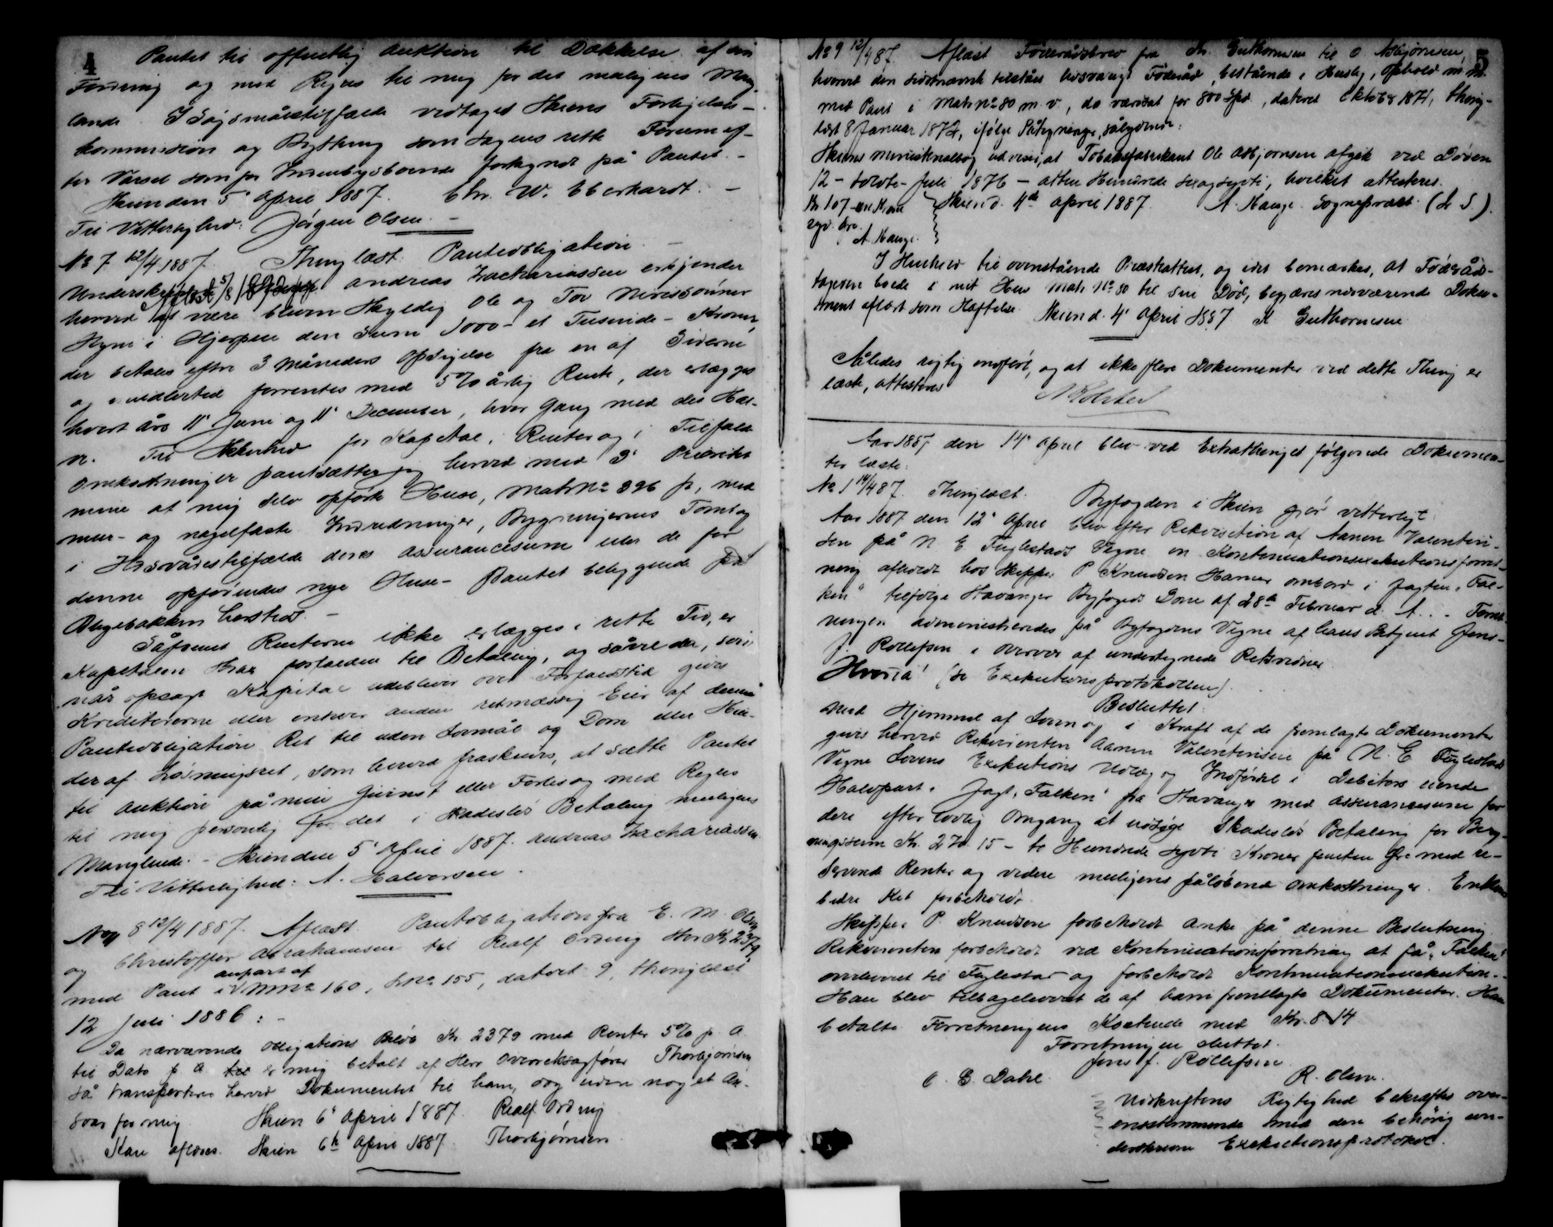 4
Pantet til offentlig Auktion til Dækkelse af sin
Fordring og med Regres til mig for det muligens Mang-
lende. I Søgsmålstilfælde vedtages Skiens Forligelses-
kommission og Bything som Sagens rette Forum ef-
ter Varsel som for Indenbysboende forkyndt på Pantet. -
Skien den 5' April 1887. Chr. W. Eberhardt. -
Til Vitterlighed: Jørgen Olsen. -
No 7 12/4 1887. Thinglæst Panteobligation. -
Underskrevne Andreas Zachariassen erkjender
herved at være bleven skyldig Ole og Tov
i Gjerpen den Sum 1000 - et Tusinde - Kroner,
der betales efter 3 Måneders Opsigelse fra en af Siderne
og imidlertid forrentes med 5% årlig Rente, der erlægges
hvert års 11' Juni og 11' December, hver Gang med det Hal-
ve. Til Sikkerhed for Kapital, Renter og i Tilfælde
Omkostninger pantsætter jeg herved med 3' Prioritet
mine af mig selv opførte Huse, Matr No 396 f, med
mur- og nagelfaste Indredninger, Bygningernes Tomt og
i Ildsvådestilfælde deres Assurancesum eller de for
denne opførendes nye Huse - Pantet beliggende på
Bøgebakken herstæd. -
Såfremt Renterne ikke erlægges i rette Tid, er
Kapitalen strax forfalden til Betaling, og såvel da, som
når opsagt Kapital udebliver over Forfaldstid gives
Kreditorerne eller enhver anden retmæssig Eier af denne
Panteobligation Ret til uden Lovmål og Dom eller Hin-
der af Løsningsret, som herved fraskrives, at sætte Pantet
til Auktion på min Gjenst eller Forlis og med Regres
til mig personlig for det i skadesløs Betaling muligens
Manglende. - Skien den 5' April 1887. Andreas Zachariassen
Til Vitterlighed: A. Halvorsen.
No 8 12/4 1887. Aflæst Pantobligation fra E. M. Olsen
og Christoffer Abrahamsen til Realf Ording stor Kr 2379,
med Pant i anpart af MNo 160, LNo 155, dateret 9, thinglæst
12 Juli 1886: -
Da nærværende Obligations Beløb Kr 2379 med Renter 5% p. A
til Dato p. A er mig betalt af Herr Overretssagfører Thorbjørnsen
så transporteres herved Dokumentet til ham, dog uden noget An-
svar for mig Skien 6' April 1887. Realf Ording
Kan aflæses. Skien 6te April 1887. Thorbjørnsen
5
No 9 12/4 87. Aflæst Føderådsbrev fra Kr. Guthormsen til O Asbjørnsen,
hvorved den sidstnævnte tilståes livsvarigt Føderåd, bestående i Husly, Ophold m. m.
med Pant i Matr No 80 m. v, do værdsat for 800 Spd, dateret Oktober 1871, thing-
læst 8 Januar 1872, ifølge Påtegninger, sålydende:
Skiens Ministerialbog udviser, at Tobaksfabrikant Ole Asbjørnsen afgik ved Døden
12 - tolvte - Juli 1876 - atten Hundrede seksogsytti, hvilket attesteres.
Skien d. 4de April 1887. A. Hauge. Sogneprest. (L S).
A. Hauge.
I Henhold til ovenstående Præsteattest, og idet bemærkes, at Føderåd-
tageren boede i mit Hus Matr. No 80 til sin Død, begjæres nærværende Doku-
ment aflæst som Hæftelse. Skien d. 4' April 1887 K Guthormsen
Således rigtig indført, og at ikke flere Dokumenter ved dette Thing er
læste, attesteres
Aar 1887 den 14' April blev ved Extrathinget følgende Dokumen-
ter læste:
No 1 14/4 87. Thinglæst. Byfogden i Skien gjør vitterligt:
Aar 1887 den 12' April blev efter Rekvisition af Aanon Valentin-
sen på N. E Fuglestads Vegne en Kontinuationsexekutionsforret-
ning afholdt hos Skipper P. Knudsen Hamre ombord i Jagten "Fal-
ken" tilfølge Stavanger Byfogeds Dom af 28de Februar d. A. - Forret-
ningen administreredes på Byfogdens Vegne af hans Betjent Jens
J. Rollefsen i Overvær af undertegnede Retsvidner.
Hvorda! (Se Exekutionsprotokollen).
Besluttet.
Med Hjemmel af Loven og i Kraft af de fremlagte Dokumenter
gives herved Rekvirenten Aanon Valentinsen på N. E Fuglestads
Vegne Lovens Exekutions Udlæg og Indførsel i Debitors eiende
Halvpart i Jagt "Falken" fra Stavanger med Assurancesum for
dere efter lovlig Omgang at udsøge skadesløs Betaling for
Kr. 270. 15 - to Hundrede sytti Kroner femten Øre med re-
serende Renter og videre muligens påløbende Omkostninger. Enhver
bedre Ret forbeholdt.
Skipper P. Knudsen forbeholdt Anke på denne Beslutning
Rekvirenten forbeholdt ved Kontinuationsforretning at få "Falken"
overleveret til Fuglestad og forbeholdt Kontinuationsexekution.
Han blev tilbageleveret de af ham fremlagte Dokumenter. Han
betalte Forretningens Kostende med Kr. 8-14
Forretningen sluttet.
Jens J. Rollefsen
C. E. Dahl. R. Olsen.
Udskriftens Rigtighed bekræftes over-
ensstemmende med den behørig au-
toriserede Exekutionsprotokol.